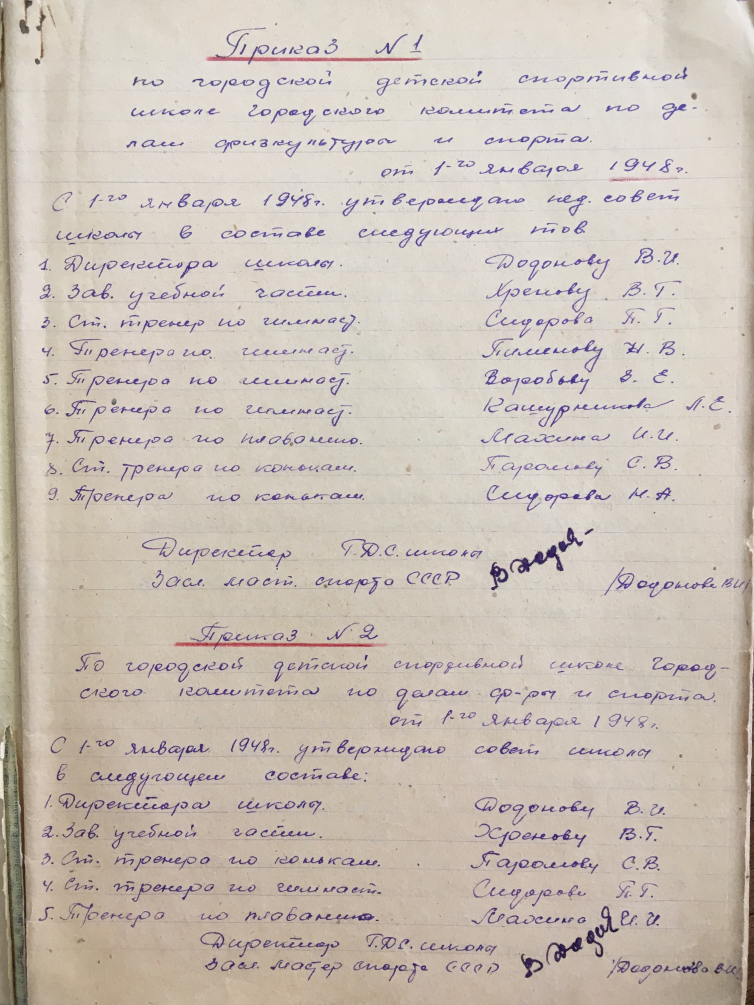 Приказ N 1
по городской детской спортивной
школе городского комитета по де-
лам физкультуры и спорта.
от 1-го января 1948г.
С 1-го января 1948г. утверждаю пед. совет
школы в составе следующих тов.
1. Директора школы. Додонову В.И.
2. Зав. учебной части. Хренову В.Т.
3. Ст. тренер по гимнаст. Сидорова П.Г.
4. Тренера по гимнаст. Пименову Н.В.
5. Тренера по гимнаст. Воробьву З.Е.
6. Тренера по гимнаст. Кашурникова Л.Е.
7. Тренера по плаванию. Махина И.И.
8. Ст. тренера по конькам. Парамову С.В.
9. Тренера по конькам. Сидорова Н.А.
Директор Г.Д.С. школы
Засл. маст. спорта СССР. /Додонова В.И/
Приказ N 2
По городской детской спортивной школе Город-
ского комитета по делам ф-ры и спорта.
от 1-го января 1948г.
С 1-го января 1948г. утверждаю совет школы
в следующем составе:
1. Директора школы. Додонову В.И.
2. Зав. учебной части. Хренову В.Т.
3. Ст. тренера по конькам. Парамову С.В.
4. Ст. тренера по гимнаст. Сидорова П.Г.
5. Тренера по плаванию. Махина И.И.
Директор Г.Д.С. школы
Засл. мастер спорта СССР /Додонова В.И/